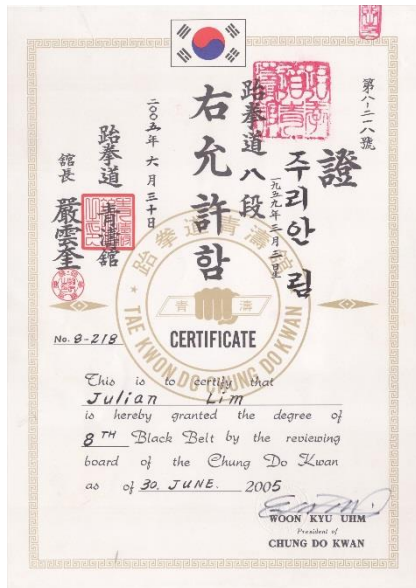 第八-二一八號
證
주리안 림
一九五九年三月三日生
跆拳道八段
右允許함
二〇〇五年 六月 三十日
跆拳道 青濤舘
舘長 嚴雲奎
跆拳道青濤舘
青濤
TAE KWON DO CHUNG DO KWAN
No. 8-218
CERTIFICATE
This is to certify that
Julian Lim
is hereby granted the degree of
8TH Black Belt by the reviewing
board of the Chung Do Kwan
as of 30. JUNE. 2005
WOON KYU UHM
President of
CHUNG DO KWAN